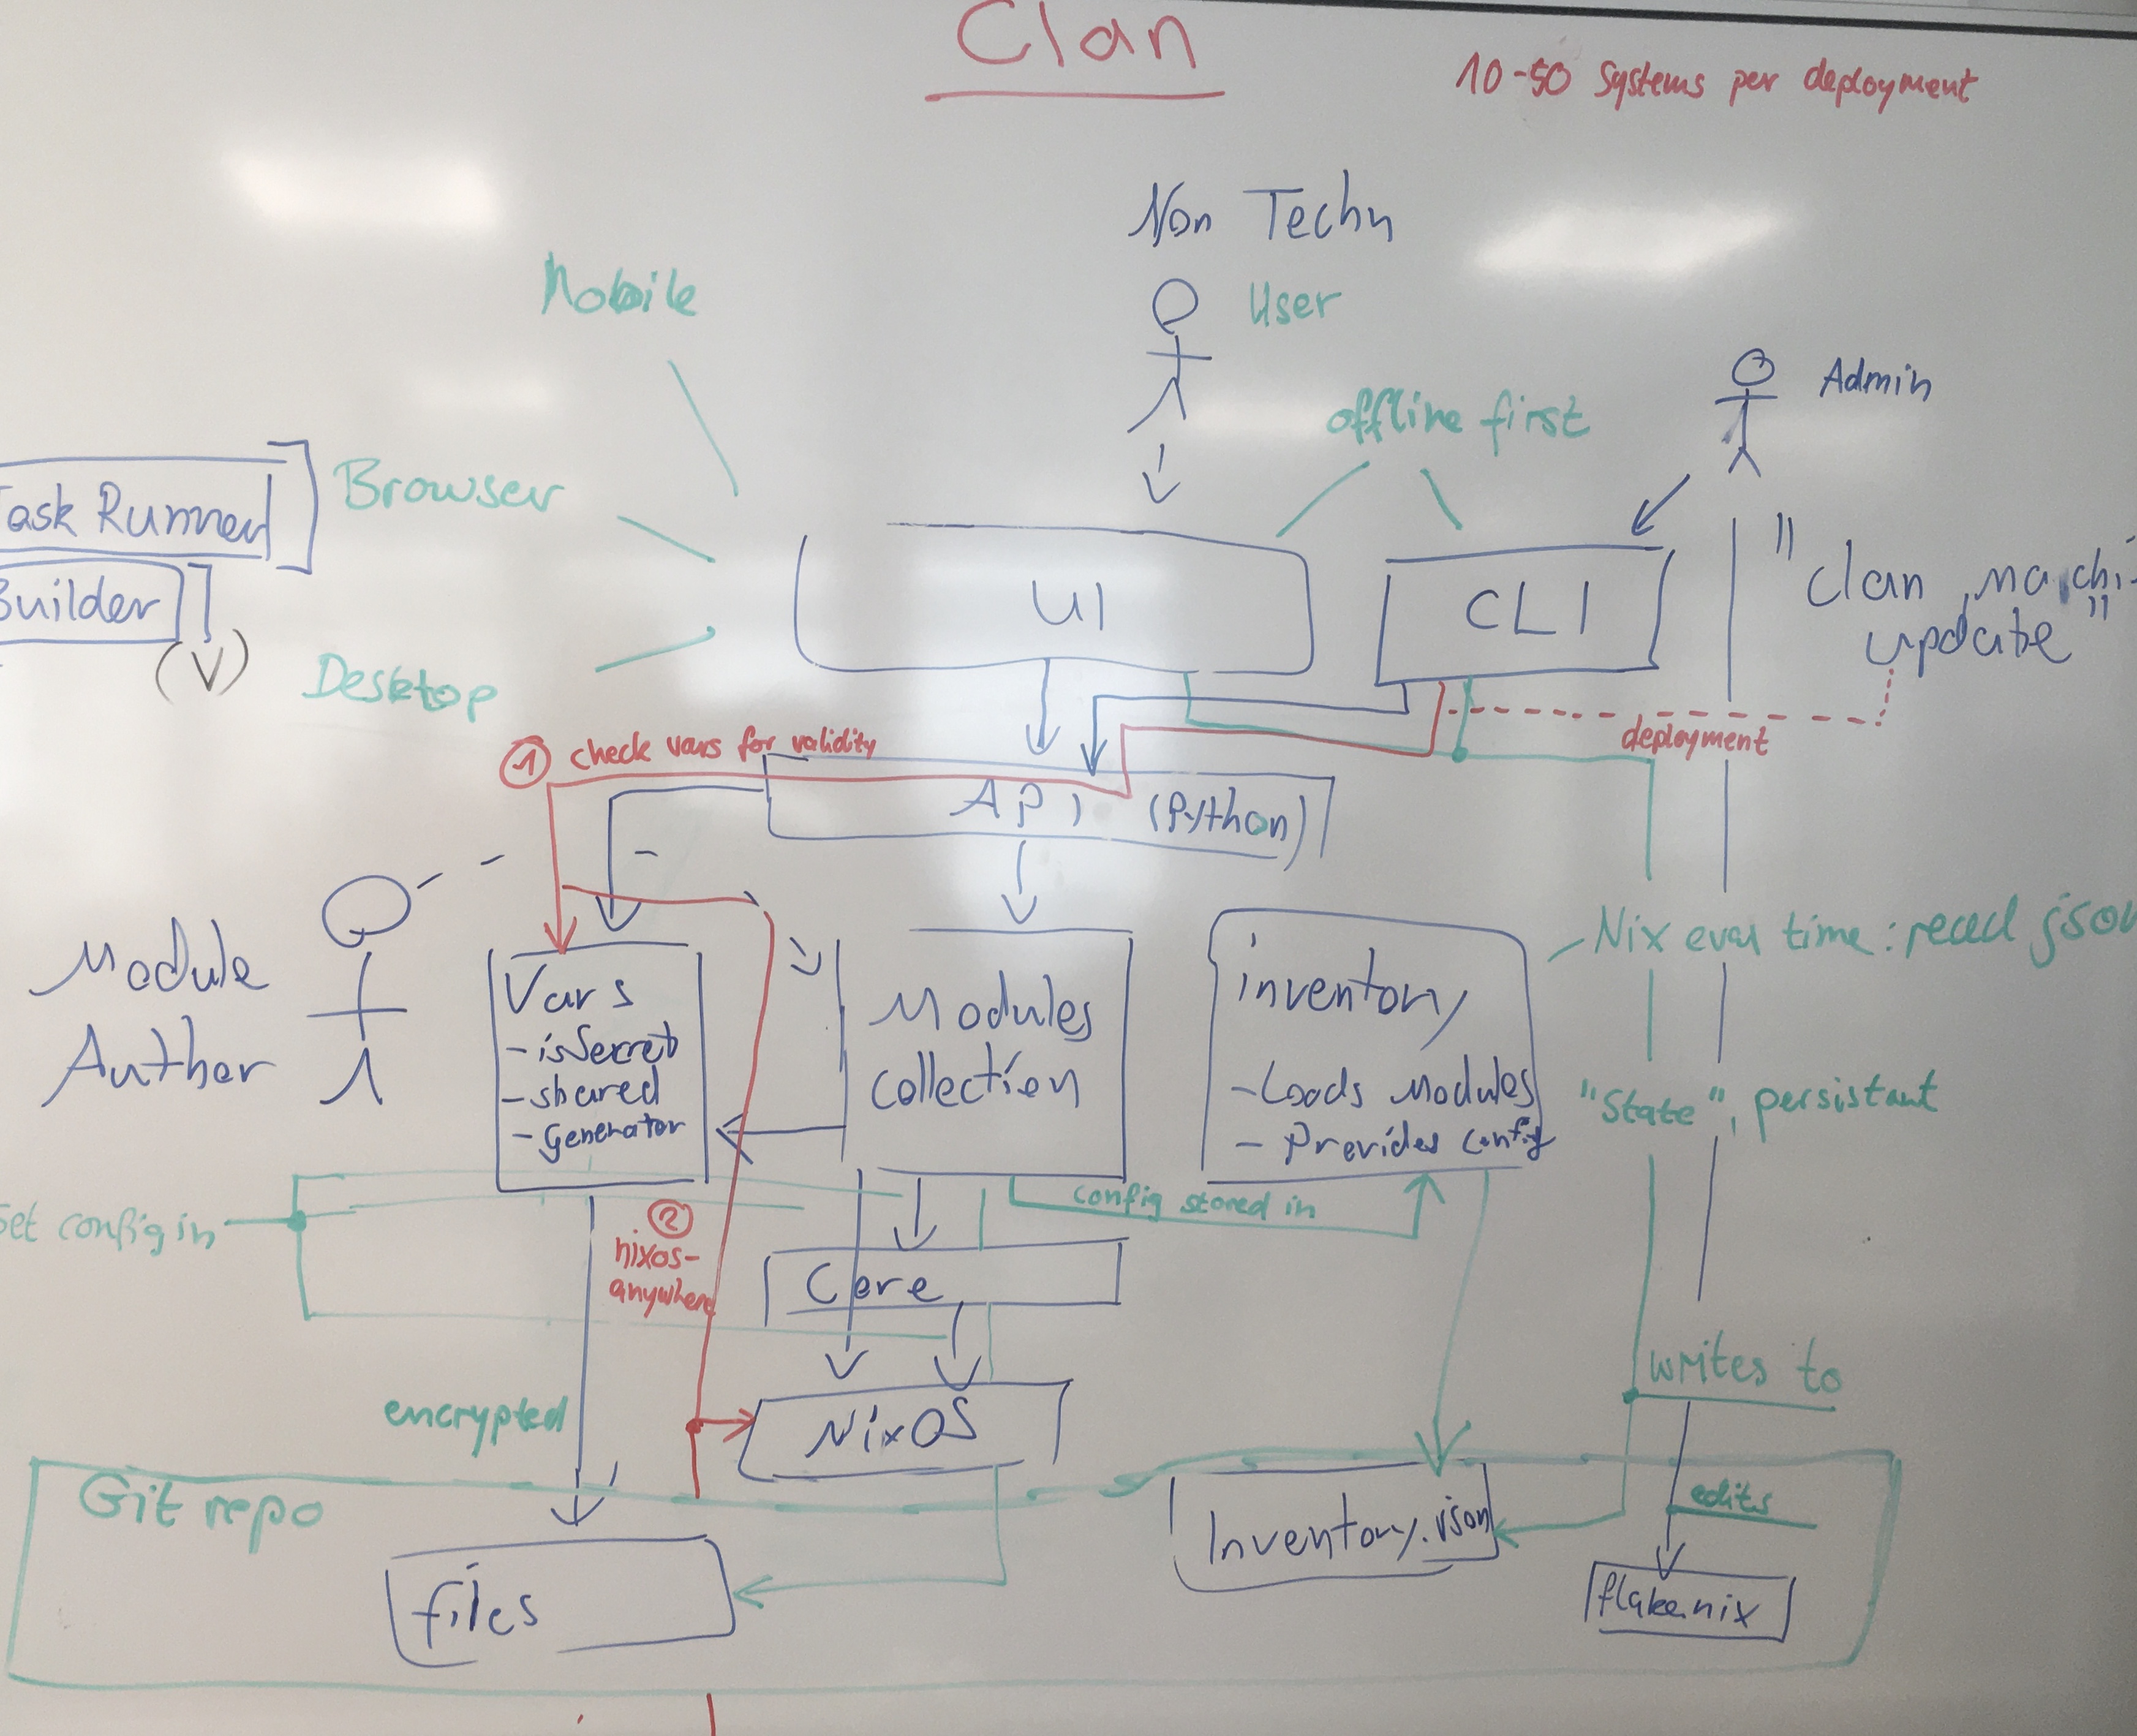 Clan
10-50 Systems per deployment
Non Techn
User
Mobile
Admin
offline first
Browser
ask Runner
Builder
(V)
Desktop
UI
CLI
"clan machi
update"
deployment
① check vars for validity
API (Python)
Module
Author
Vars
- isSecret
- shared
- Generator
Modules
collection
inventory
- Loads Modules
- Provides config
Nix eval time: read json
"State", persistant
config stored in
et config in
②
nixos-
anywhere
Core
writes to
encrypted
NixOS
Git repo
edits
Inventory.json
files
flake.nix